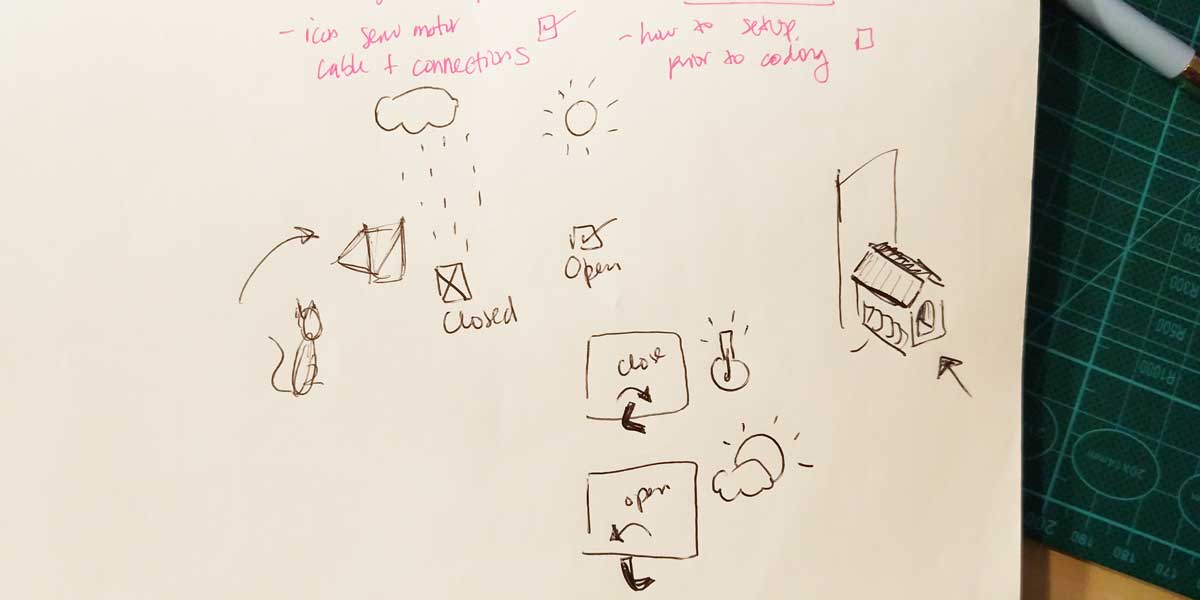 - icons servo motor
cable + connections
- how to setup,
prior to coding
Open
Closed
close
open
R500
R1000
200
190
180
170